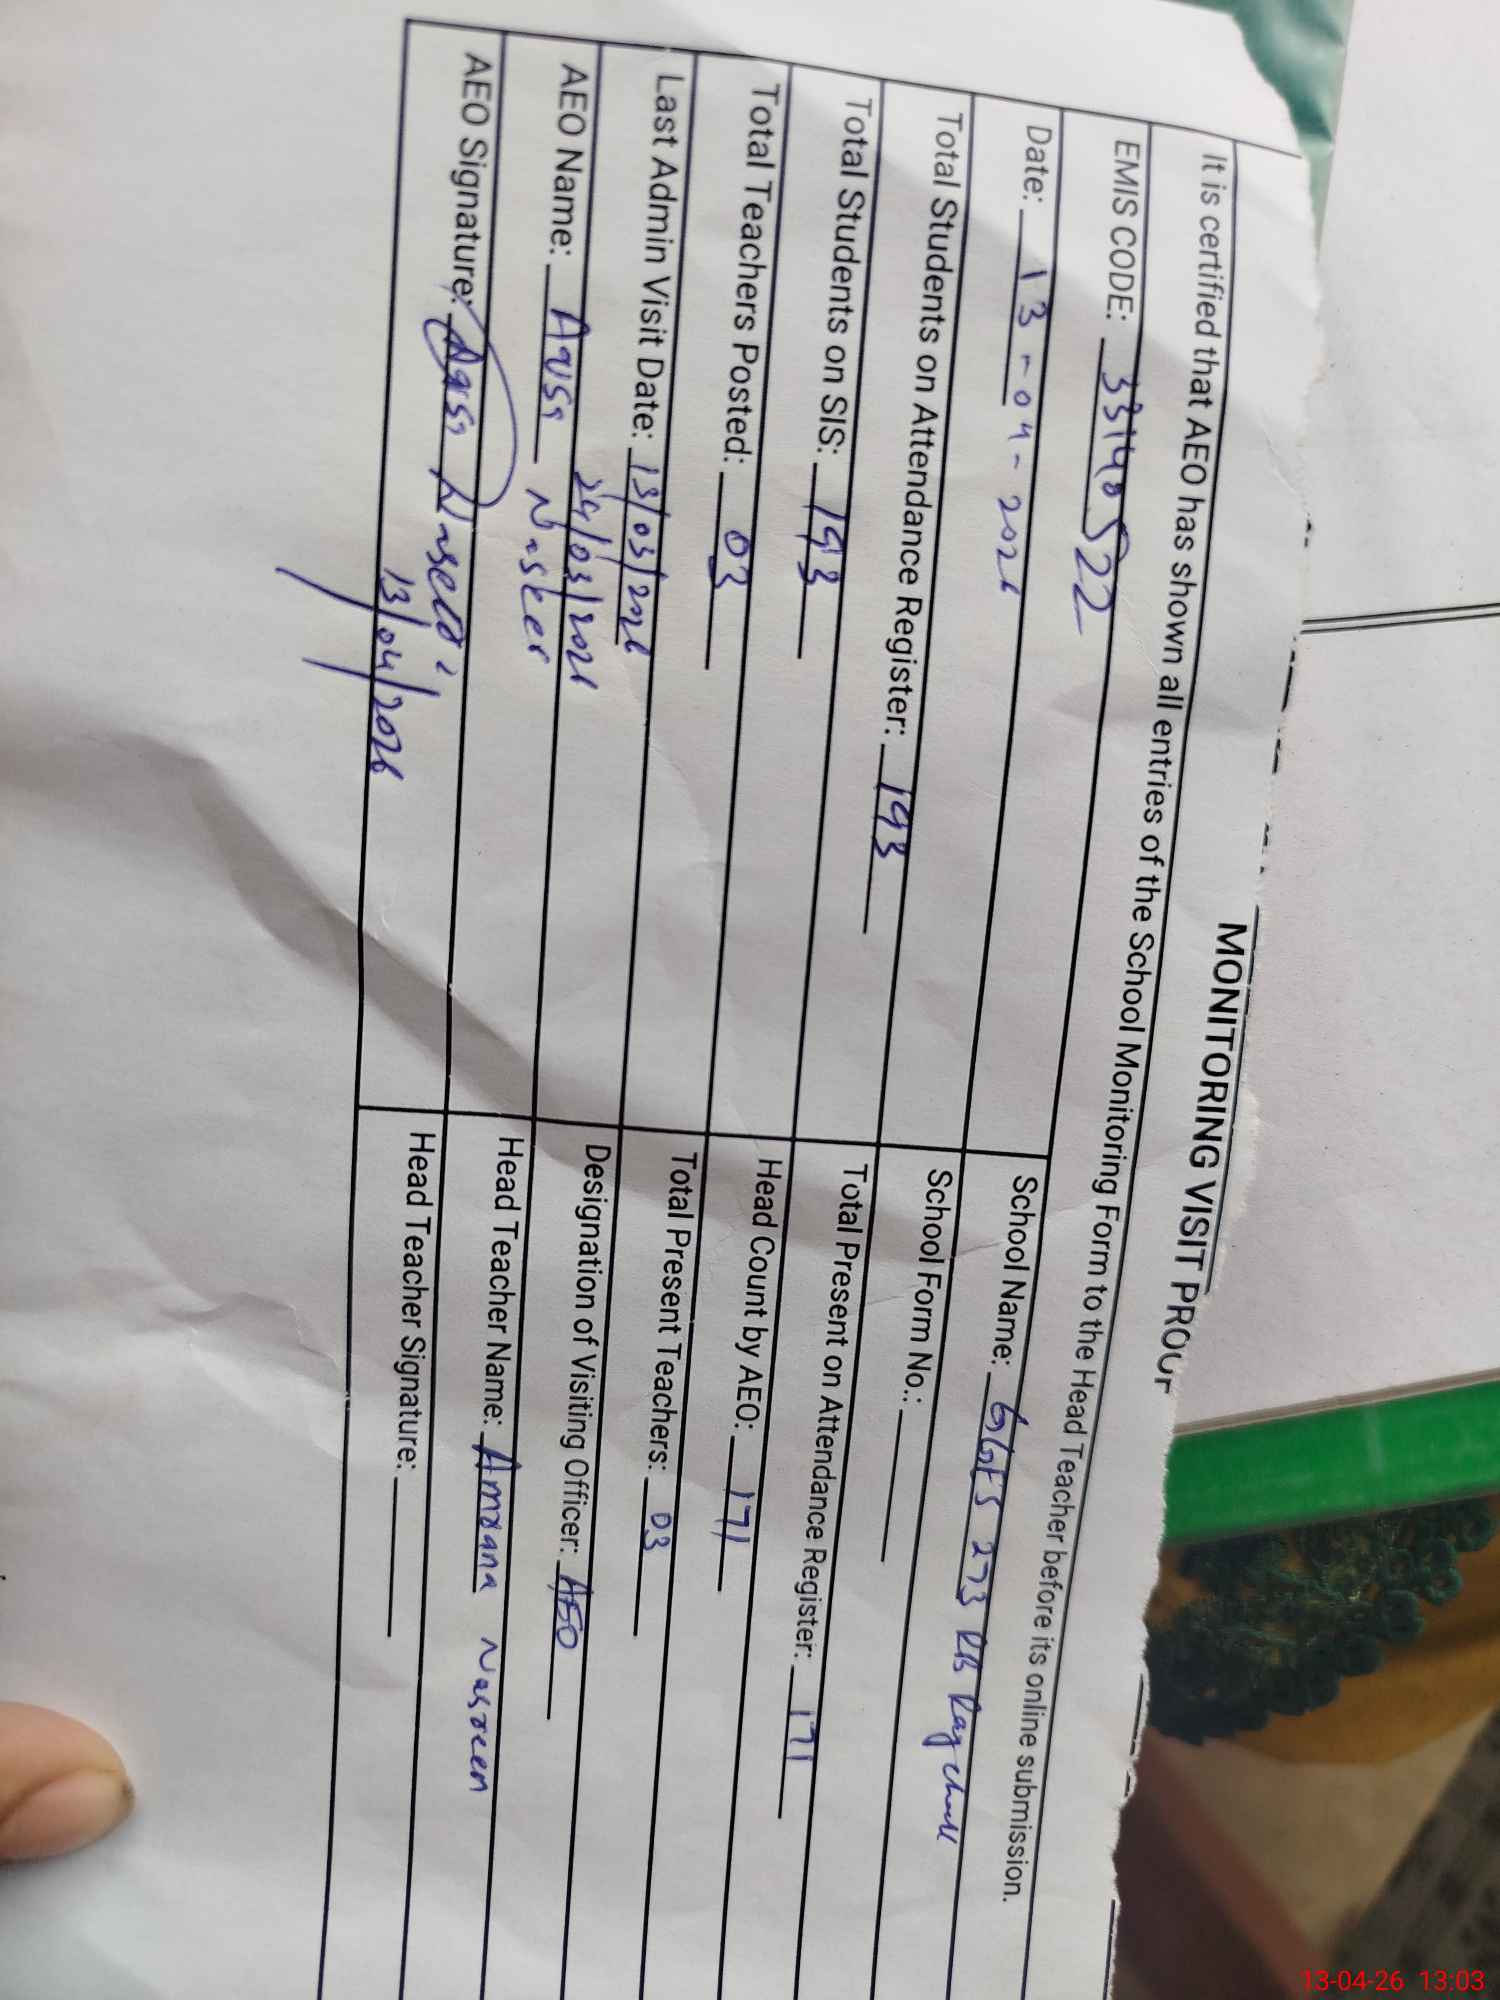 MONITORING VISIT PROOF
It is certified that AEO has shown all entries of the School Monitoring Form to the Head Teacher before its online submission.
EMIS CODE: 33140522
Date: 13-04-2026
School Name: GGPS 273 RB
Total Students on Attendance Register: 193
School Form No.:
Total Students on SIS: 193
Total Present on Attendance Register: 171
Total Teachers Posted: 03
Head Count by AEO: 171
Last Admin Visit Date: 13/03/2026
24/03/2026
Total Present Teachers: 03
AEO Name:
Designation of Visiting Officer: AEO
AEO Signature:
13/04/2026
Head Teacher Name: Amrana Nasreen
Head Teacher Signature:
13-04-26 13:03